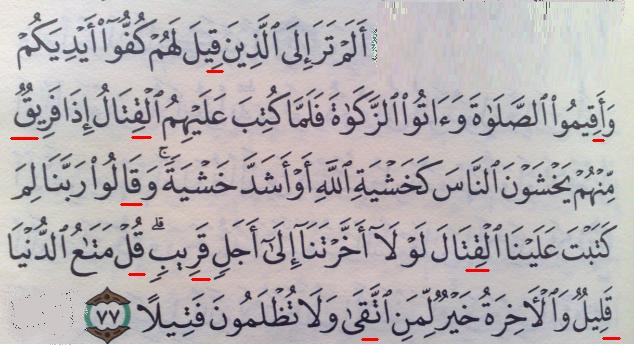 أَلَمْ تَرَ إِلَى ٱلَّذِينَ قِيلَ لَهُمْ كُفُّوٓا۟ أَيْدِيَكُمْ
وَأَقِيمُوا۟ ٱلصَّلَوٰةَ وَءَاتُوا۟ ٱلزَّكَوٰةَ فَلَمَّا كُتِبَ عَلَيْهِمُ ٱلْقِتَالُ إِذَا فَرِيقٌ
مِّنْهُمْ يَخْشَوْنَ ٱلنَّاسَ كَخَشْيَةِ ٱللَّهِ أَوْ أَشَدَّ خَشْيَةً ۚ وَقَالُوا۟ رَبَّنَا لِمَ
كَتَبْتَ عَلَيْنَا ٱلْقِتَالَ لَوْلَآ أَخَّرْتَنَآ إِلَىٰٓ أَجَلٍ قَرِيبٍ ۗ قُلْ مَتَٰعُ ٱلدُّنْيَا
قَلِيلٌ وَٱلْءَاخِرَةُ خَيْرٌ لِّمَنِ ٱتَّقَىٰ وَلَا تُظْلَمُونَ فَتِيلًا ٧٧